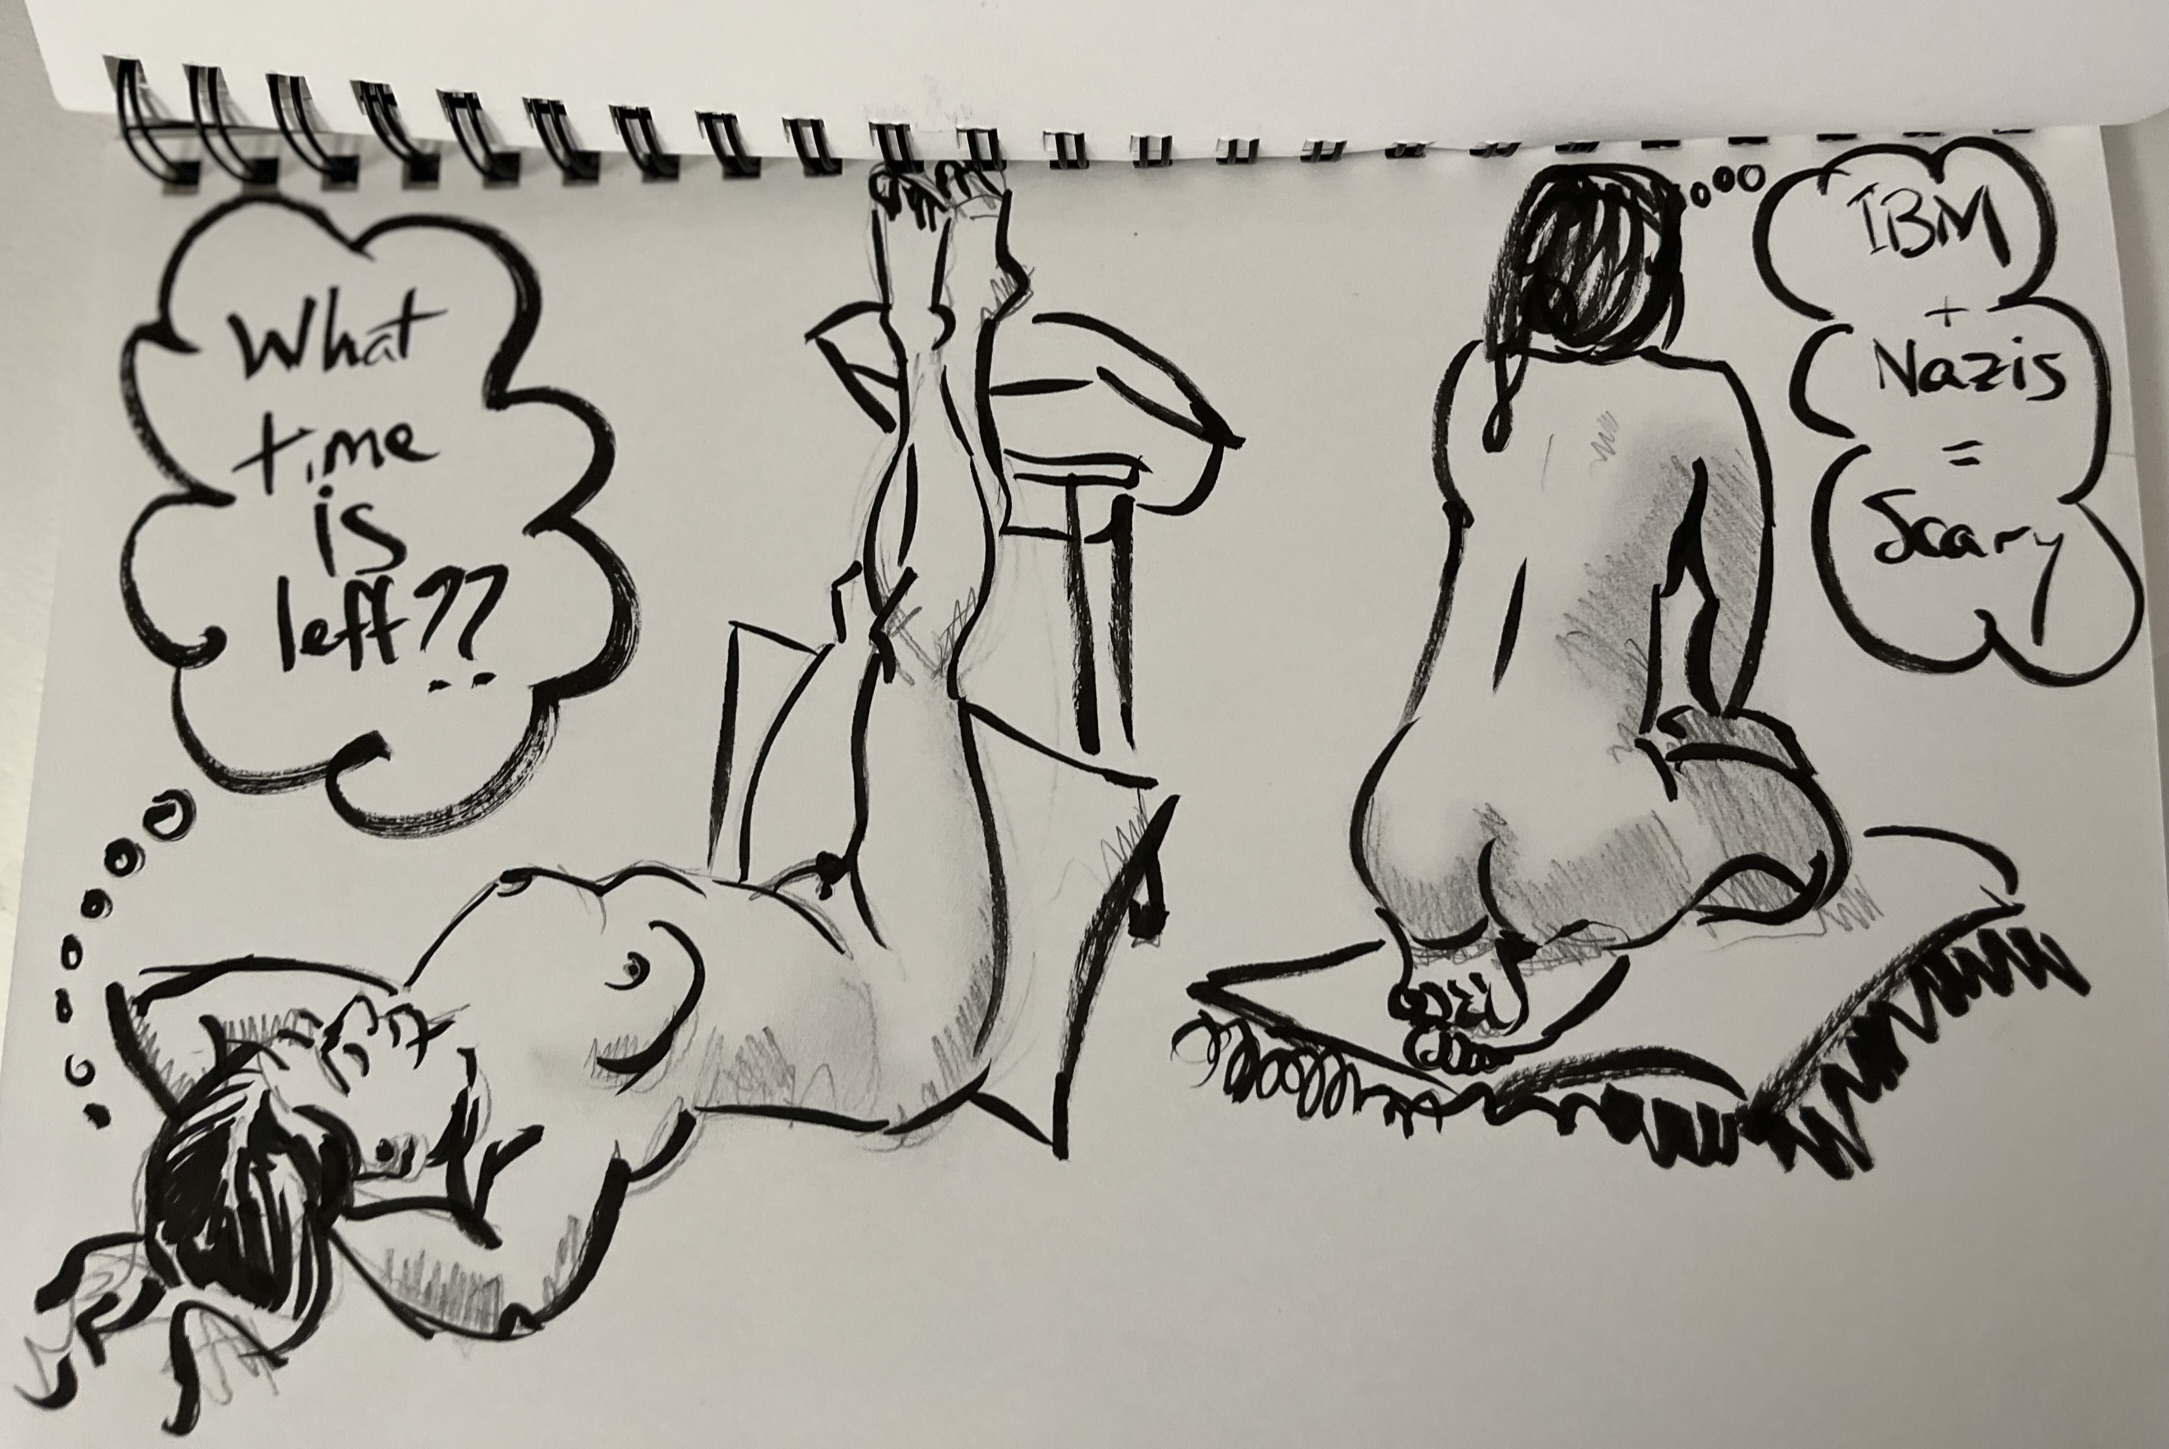 What
time
is
left??
IBM
+
Nazis
=
Scary